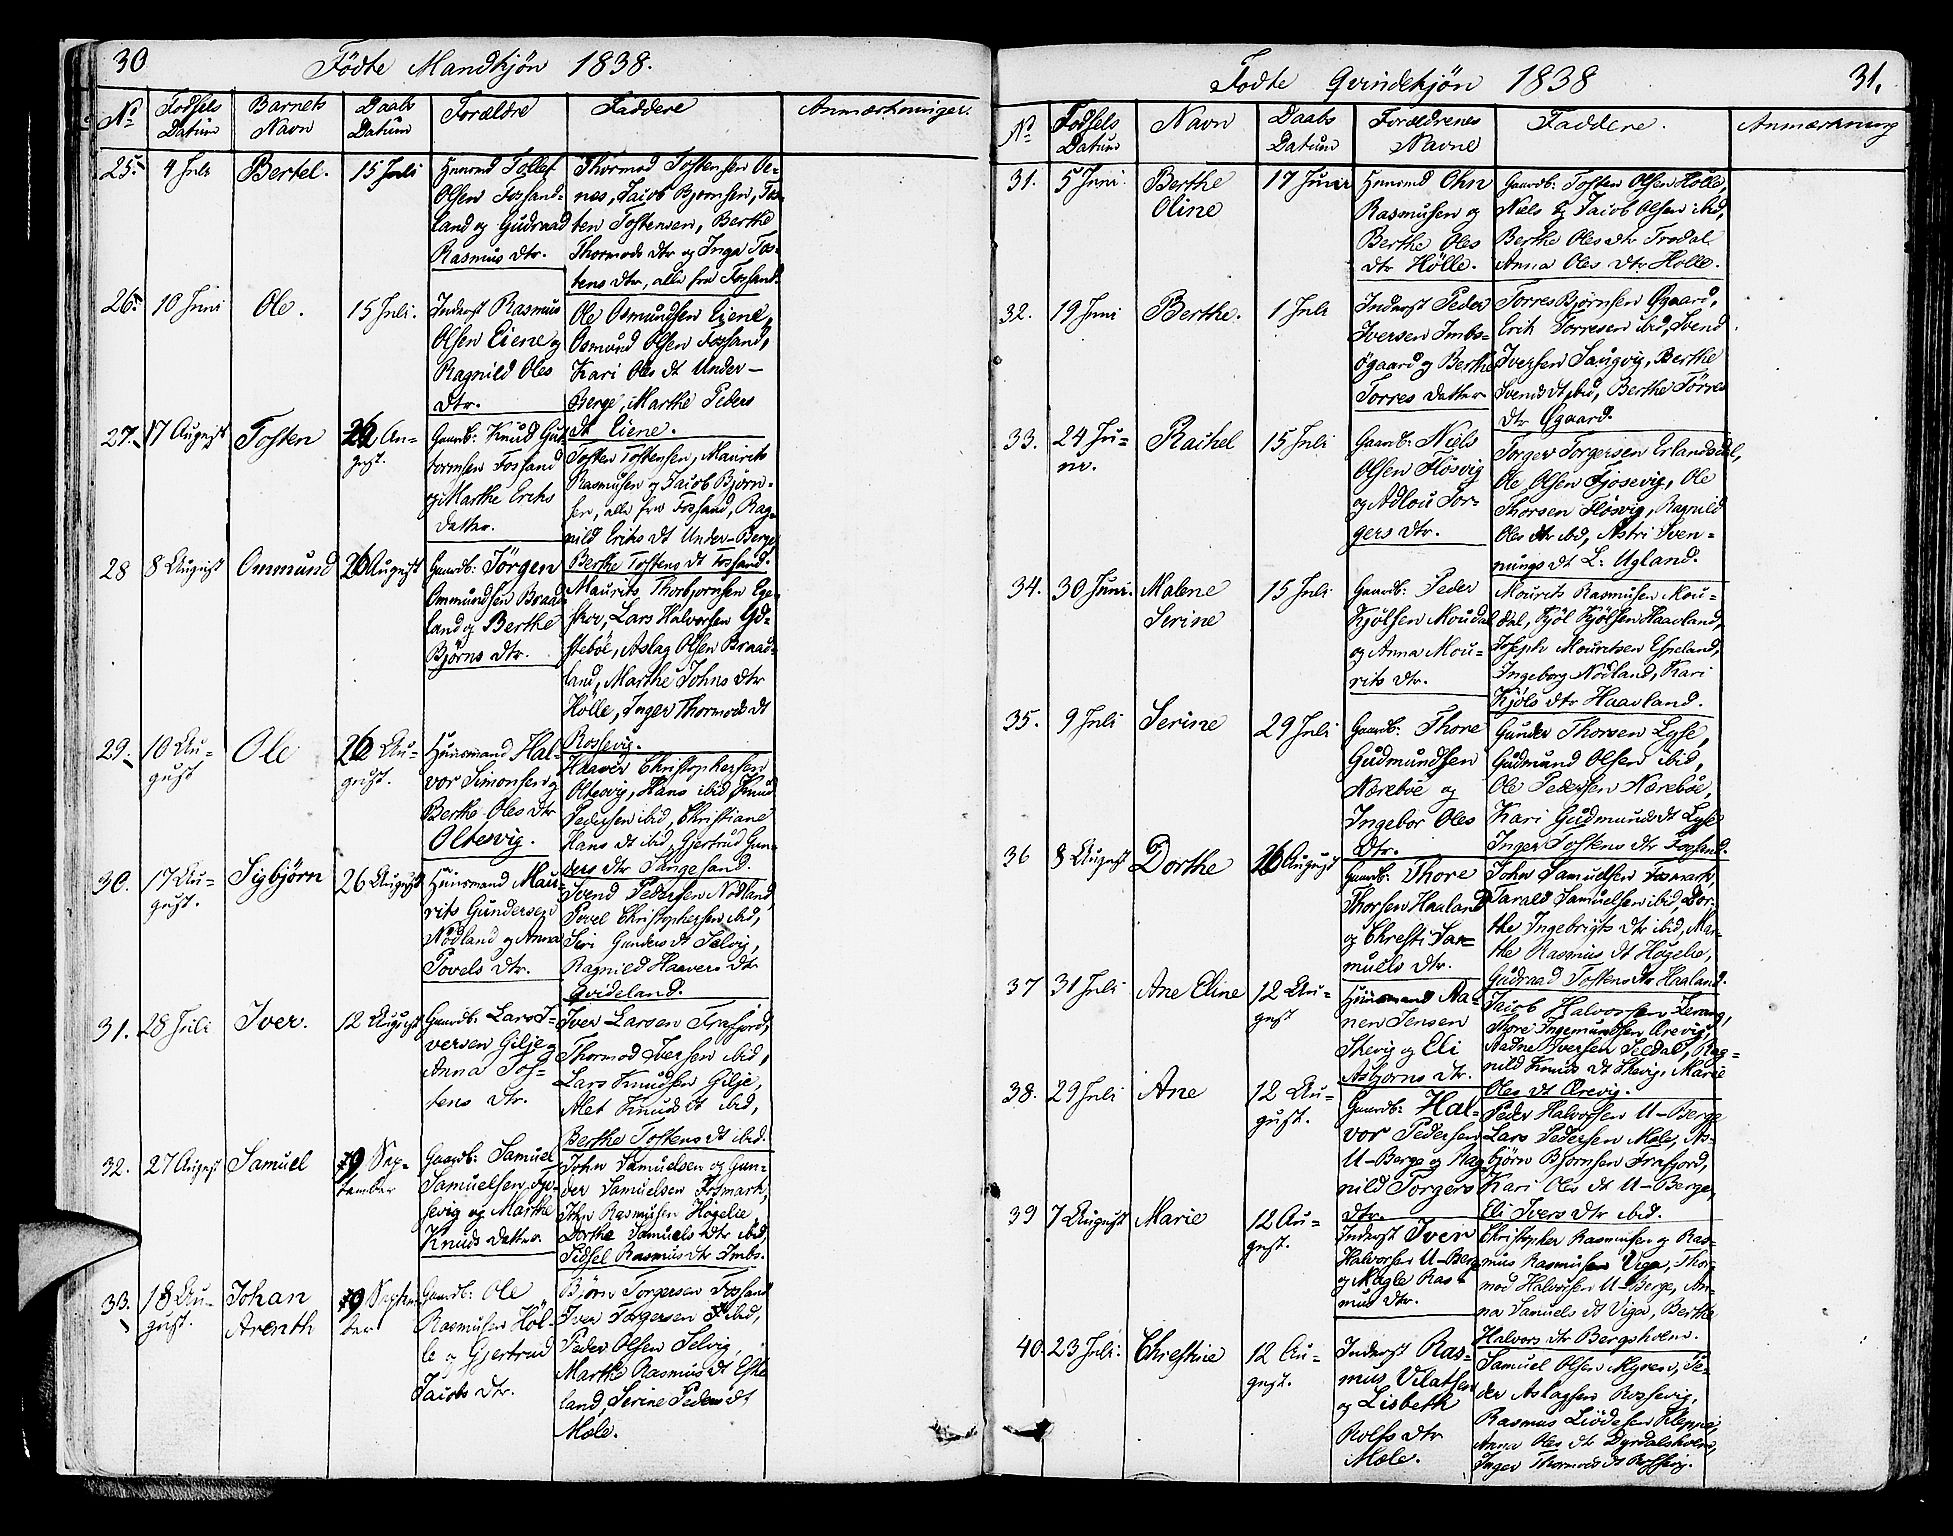 30
Födte Mandkjøn 1838.
No
Fødsels Datum
Barnets Navn
Daabs Datum
Forældre
Faddere
Anmærkninger.
25.
4 Juli
Bertel.
15 Juli
Huusmd Tollef
Olsen Fossand-
land og Gudraad
Rasmus dtr.
Thormod Tostensen Oe-
nes, Jacob Bjørnsen, Tos-
ten Tostensen, Berthe
Thormods dtr og Inga Tos-
tens dtr, alle fra Fossand.
26.
10 Juni
Ole.
15 Juli.
Inderst Rasmus
Olsen Eiene og
Ragnild Oles
dtr.
Ole Osmundsen Eiene,
Osmund Olsen Fossand,
Kari Oles dt Under-
Berge, Marthe Peders
dt Eiene.
27.
17 August
Tosten
26 Au-
gust.
Gaardb: Knud Gut-
tormsen Fossand
og Marthe Eriks
datter.
Tosten Tostensen, Maurits
Rasmusen og Jacob Bjørn-
sen, alle fra Fossand, Rag-
nild Eriks dt Under-Berge
Berthe Tostens dt Fossand.
28
8 August
Ommund
26 August
Gaardb: Jörgen
Ommundsen Braad-
land og Berthe
Björns dtr.
Maurits Thorbjornsen Ege-
skov, Lars Halvorsen Ed-
steböe, Aslag Olsen Braad-
land, Marthe Johns dtr
Hölle, Inger Thormods dt
Rossevig.
29.
10 Au-
gust
Ole
26 Au-
gust.
Huusmand Hal-
vor Simonsen og
Berthe Oles dtr
Oltesvig.
Haaver Christophersen
Oltesvig, Hans ibid, Knud
Pedersen ibid, Christiane
Hans dt ibid, Gjertrud Gun-
ders dtr Tangesand.
30.
17 Au-
gust.
Sigbjørn
26 August
Huusmand Mau-
rits Gundersen
Nödland og Anna
Povels dtr.
Svend Pedersen Nödland,
Povel Christophersen ibid,
Siri Gunders dt Selvig,
Ragnild Haavers dtr
Qvideland.
31.
28 Juli
Iver.
12 August
Gaardb: Lars I-
versen Gilje og
Anna Tos-
tens dtr.
Iver Larsen Frafjord,
Thormod Iversen ibid,
Lars Knudsen Gilje,
Alet Knuds dt ibid,
Berthe Tostens dt ibid.
32.
27 August
Samuel
9 Sep-
tember
Gaardb: Samuel
Samuelsen Fjo-
sevig og Marthe
Knuds datter.
John Samuelsen og Gun-
der Samuelsen Fosmark,
John Rasmusen Hogelie,
Dorthe Samuels dtr ibid,
Sidsel Rasmus dtr Imbs.
33.
18 Au-
gust.
Johan
Arenth
9 Septem-
ber
Gaardb: Ole
Rasmusen Höl-
le og Gjertrud
Jacobs dtr.
Björn Torgersen Fossand
Iver Torgersen ibid,
Peder Olsen Selvig,
Marthe Rasmus dt Eske-
land, Serine Peders dt
Mæle.
Fødte Qvindekjön 1838
31.
No
Fødsels Datum
Navn
Daabs Datum
Forældrenes Navne
Faddere.
Anmærkning
31.
5 Juni.
Berthe
Oline
17 Juni
Huusmd Ohn
Rasmusen og
Berthe Oles
dtr Hölle.
Gaardb: Tosten Olsen Hölle,
Niels og Jacob Olsen ibid,
Berthe Oles dtr Trodal
Anna Oles dtr Holle.
32.
19 Juni
Berthe.
1 Juli
Inderst Peder
Iversen Imbs-
øgaard og Berthe
Torres datter
Torres Bjørnsen Øgaard,
Erik Torresen ibid, Svend
Iversen Saugvig, Berthe
Svends dt ibid, Berthe Törres
dtr Øgaard.
33.
24 Ju-
ni.
Rachel
15 Juli
Gaardb: Niels
Olsen Flösvig
og Adlou Tor-
gers dtr.
Torger Torgersen Erlandsdal,
Ole Olsen Fjosevig, Ole
Thorsen Flösvig, Ragnild
Oles dtr ibid, Astri Sven-
nungs dt L: Ugland.
34.
30 Juni.
Malene
Serine
15 Juli
Gaardb: Peder
Kjölsen Moudal
og Anna Mou-
rits dtr.
Mourits Rasmusen Mou-
dal, Kjöl Kjölsen Haavland,
Joseph Mouritsen Espeland,
Ingeborg Nödland, Kari
Kjöls dtr Haavland.
35.
9 Juli
Serine
29 Juli
Gaardb: Thore
Gudmundsen
Næreböe og
Ingebor Oles
dtr.
Gunder Thorsen Lyse,
Gudmund Olsen ibid,
Ole Pedersen Næreböe,
Kari Gudmunds dt Lyse
Inger Tostens dtr Fossand.
36
8 August
Dorthe
26 August
Gaardb: Thore
Thorsen Haaland
og Chresti Sa-
muels dtr.
John Samuelsen Fosmark,
Tarald Samuelsen ibid, Dor-
the Ingebrigts dtr ibid, Mar-
the Rasmus dt Høgelie,
Gudraad Tostens dtr Haaland.
37
31 Juli
Ane Eline
12 Au-
gust
Huusmand Aa-
nen Jensen
Skevig og Eli
Asbjørns dtr.
Jacob Halvorsen Lerang,
Thore Ingemundsen Qrevig,
Aadne Iversen Seldal, Rag-
nild Knuds dt Skevig, Marie
Oles dt Qrevig.
38.
29 Juli
Ane
12 Au-
gust.
Gaardb: Hal-
vor Pedersen
U-Berge og Rag-
nild Torgers
dtr.
Peder Halvorsen U-Berge
Lars Pedersen Mæle, As-
bjørn Bjornsen Frafjord,
Kari Oles dt U-Berge,
Eli Ivers dtr ibid.
39
7 August
Marie
12 Au-
gust.
Inderst Iver
Halvorsen U-Berge
og Magle Ras-
mus dtr.
Christopher Rasmusen og Ras-
mus Rasmusen Viga, Thor-
mod Halvorsen U-Berge, An-
na Samuels dt Viga, Berthe
Halvors dtr Bergsholm.
40.
23 Juli.
Chrestine
12 Au-
gust.
Inderst Ras-
mus Vilatsen
og Lisbeth
Rolfs dtr
Mæle.
Samuel Olsen Myren, Pe-
der Aslagsen Rossevig,
Rasmus Liödesen Kleppa,
Anna Oles dt Dyrdalsholm,
Inger Thormods dt Rossevig.